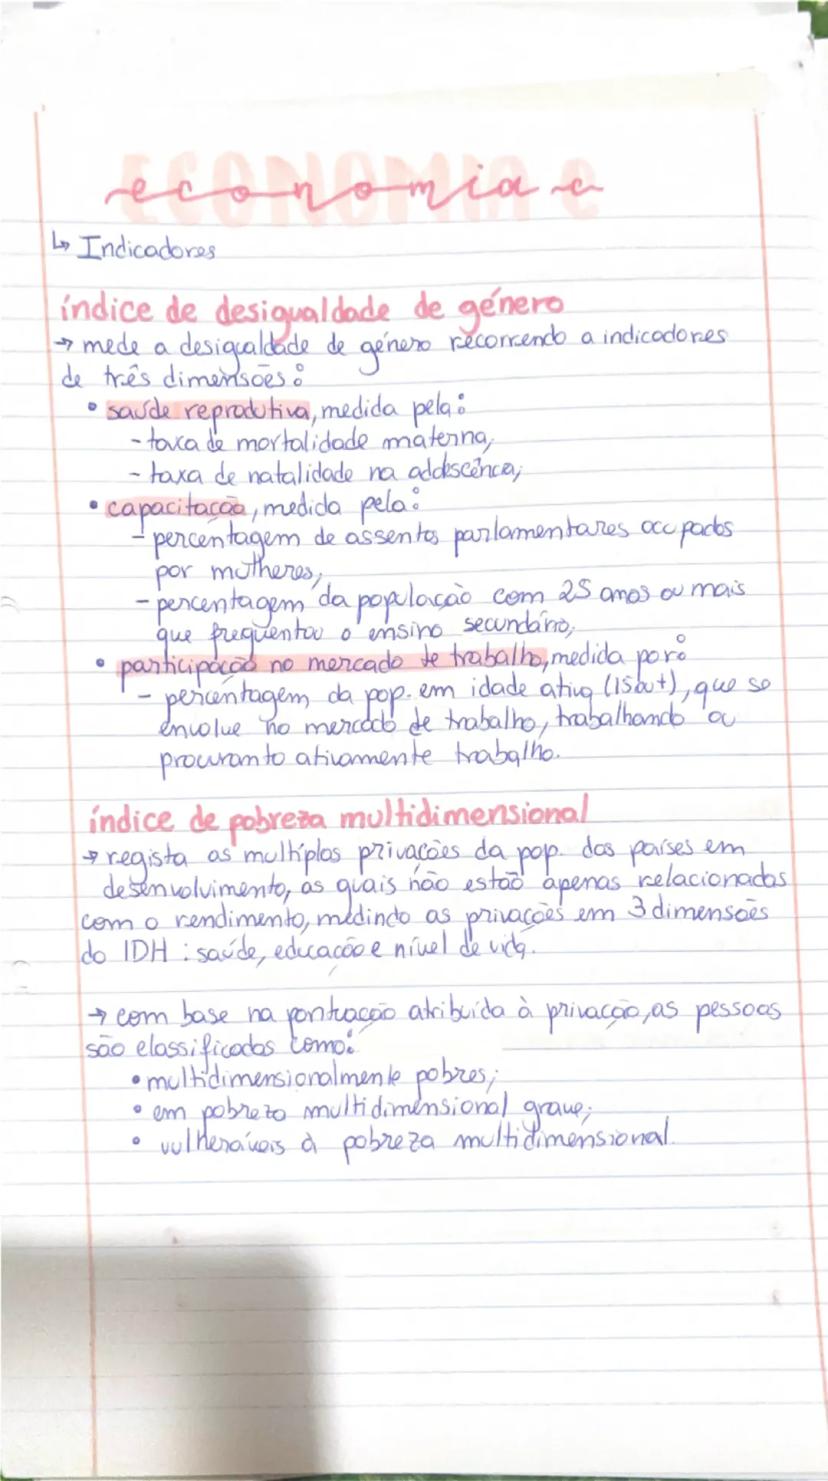 economia c
↳ Indicadores
índice de desigualdade de género
→ mede a desigualdade de género recorrendo a indicadores
de três dimensões:
• saúde reprodutiva, medida pela:
- taxa de mortalidade materna,
- taxa de natalidade na adolescência;
• capacitação, medida pela:
- percentagem de assentos parlamentares ocupados
por mulheres;
- percentagem da população com 25 anos ou mais
que frequentou o ensino secundário;
• participação no mercado de trabalho, medida por:
- percentagem da pop. em idade ativa (15 ou +), que se
envolve no mercado de trabalho, trabalhando ou
procuranto ativamente trabalho.
índice de pobreza multidimensional
→ regista as multiplas privações da pop. dos países em
desenvolvimento, as quais não estão apenas relacionadas
com o rendimento, medindo as privações em 3 dimensões
do IDH : saúde, educação e nível de vida.
→ com base na pontuação atribuída à privação, as pessoas
são classificadas como:
• multidimensionalmente pobres;
• em pobreza multidimensional grave;
• vulneráveis à pobreza multidimensional.